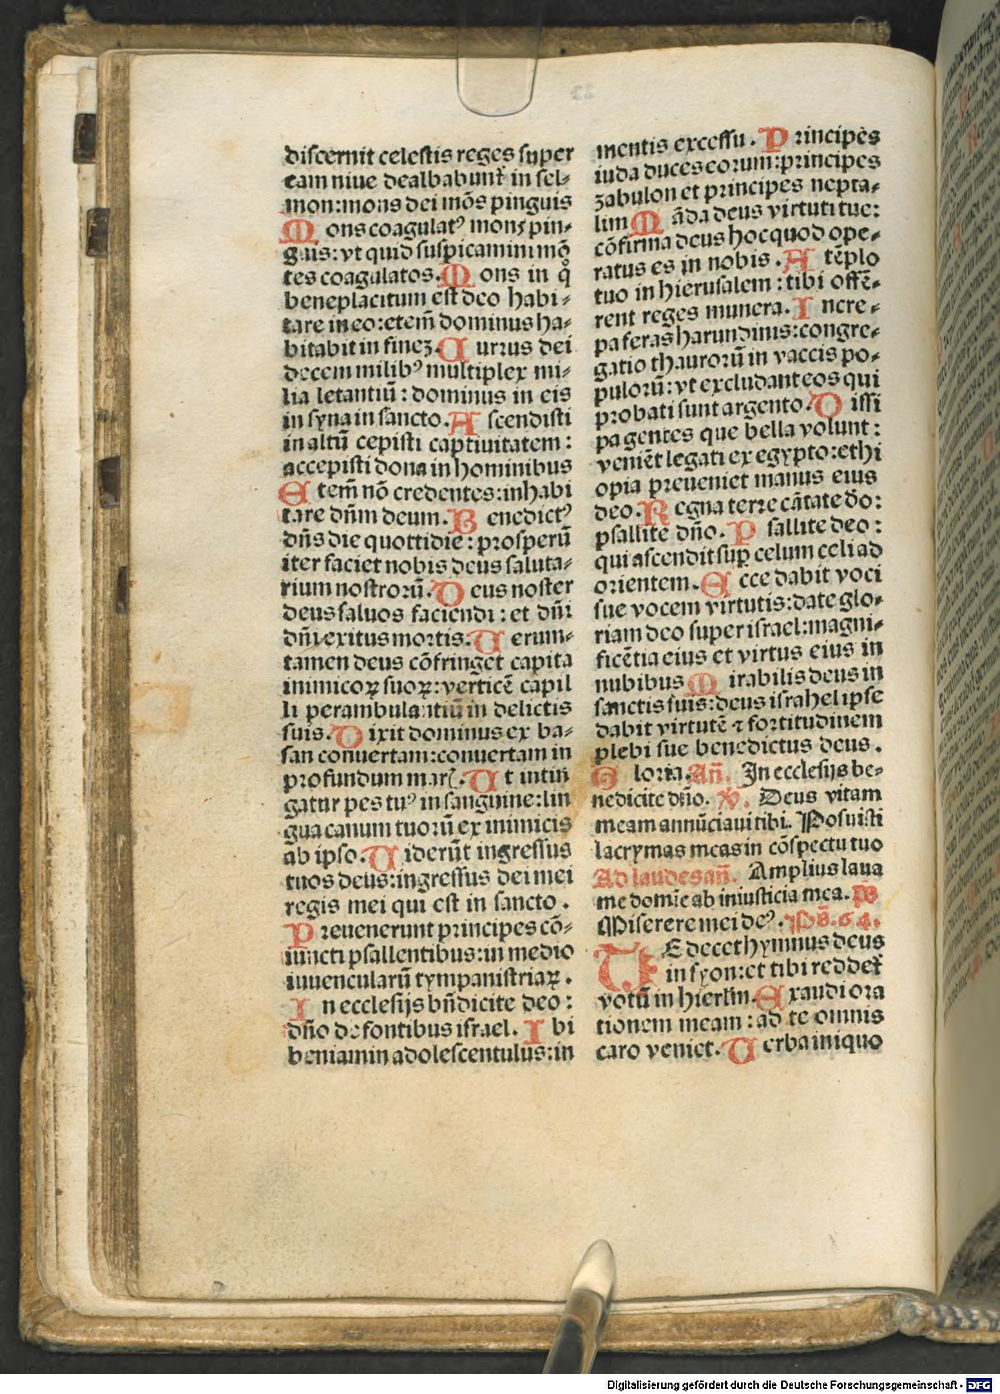 discernit celestis reges super
eam niue dealbabunt᷑ in sel⸗
mon:mons dei mōs pinguis
Mons coagulatꝰ mons pin⸗
guis:vt quid suspicamini mō
tes coagulatos. Mons in q̊
beneplacitum est deo habi⸗
tare in eo:etem̄ dominus ha⸗
bitabit in fineꝫ. Currus dei
decem milibꝰ multiplex mi⸗
lia letantiū: dominus in eis
in syna in sancto. Ascendisti
in altū cepisti captiuitatem:
accepisti dona in hominibus
Etem̄ nō credentes:inhabi
tare dn̄m deum. Benedictꝰ
dn̄s die quottidie: prosperū
iter faciet nobis deus saluta⸗
rium nostrorū. Deus noster
deus saluos faciendi: et dn̄i
dn̄i exitus mortis. Uerum⸗
tamen deus cōfringet capita
inimicoꝝ suoꝝ:verticē capil
li perambulantiū in delictis
suis. Dixit dominus ex ba⸗
san conuertam:conuertam in
profundum mar{. Ut intin
gatur pes tuꝰ in sanguine:lin
gua canum tuorū ex inimicis
ab ipso. Uiderūt ingressus
tuos deus:ingressus dei mei
regis mei qui est in sancto.
Preuenerunt principes cō⸗
iuncti psallentibus:in medio
iuuencularū tympanistriaꝝ.
In ecclesijs bn̄dicite deo:
dn̄o de fontibus israel. Ibi
beniamin adolescentulus:in
mentis excessu. Principes
iuda duces eorum:principes
zabulon et principes nepta⸗
lim Māda deus virtuti tue:
cōfirma deus hoc quod ope⸗
ratus es in nobis. A tēplo
tuo in hierusalem: tibi offē⸗
rent reges munera. Incre⸗
pa feras harundinis:congre⸗
gatio thaurorū in vaccis po⸗
pulorū:vt excludant eos qui
probati sunt argento. Dissi
pa gentes que bella volunt:
veniēt legati ex egypto:ethi
opia preueniet manus eius
deo. Regna terre cātate deo:
psallite dn̄o. Psallite deo:
qui ascendit suꝑ celum celi ad
orientem. Ecce dabit voci
sue vocem virtutis:date glo⸗
riam deo super israel:magni⸗
ficētia eius et virtus eius in
nubibus Mirabilis deus in
sanctis suis:deus israhel ipse
dabit virtutē ⁊ fortitudinem
plebi sue benedictus deus.
Gloria. Añ. In ecclesijs be⸗
nedicite dn̄o. V. Deus vitam
meam annūciaui tibi. Posuisti
lacrymas meas in cōspectu tuo
Ad laudes añ. Amplius laua
me domīe ab iniusticia mea. ps
Miserere mei deꝰ. ps. 64.
TE decet hymnus deus
in syon:et tibi reddet᷑
votū in hierl̄m. Exaudi ora
tionem meam: ad te omnis
caro veniet. Uerba iniquo
Digitalisierung gefördert durch die Deutsche Forschungsgemeinschaft - DFG